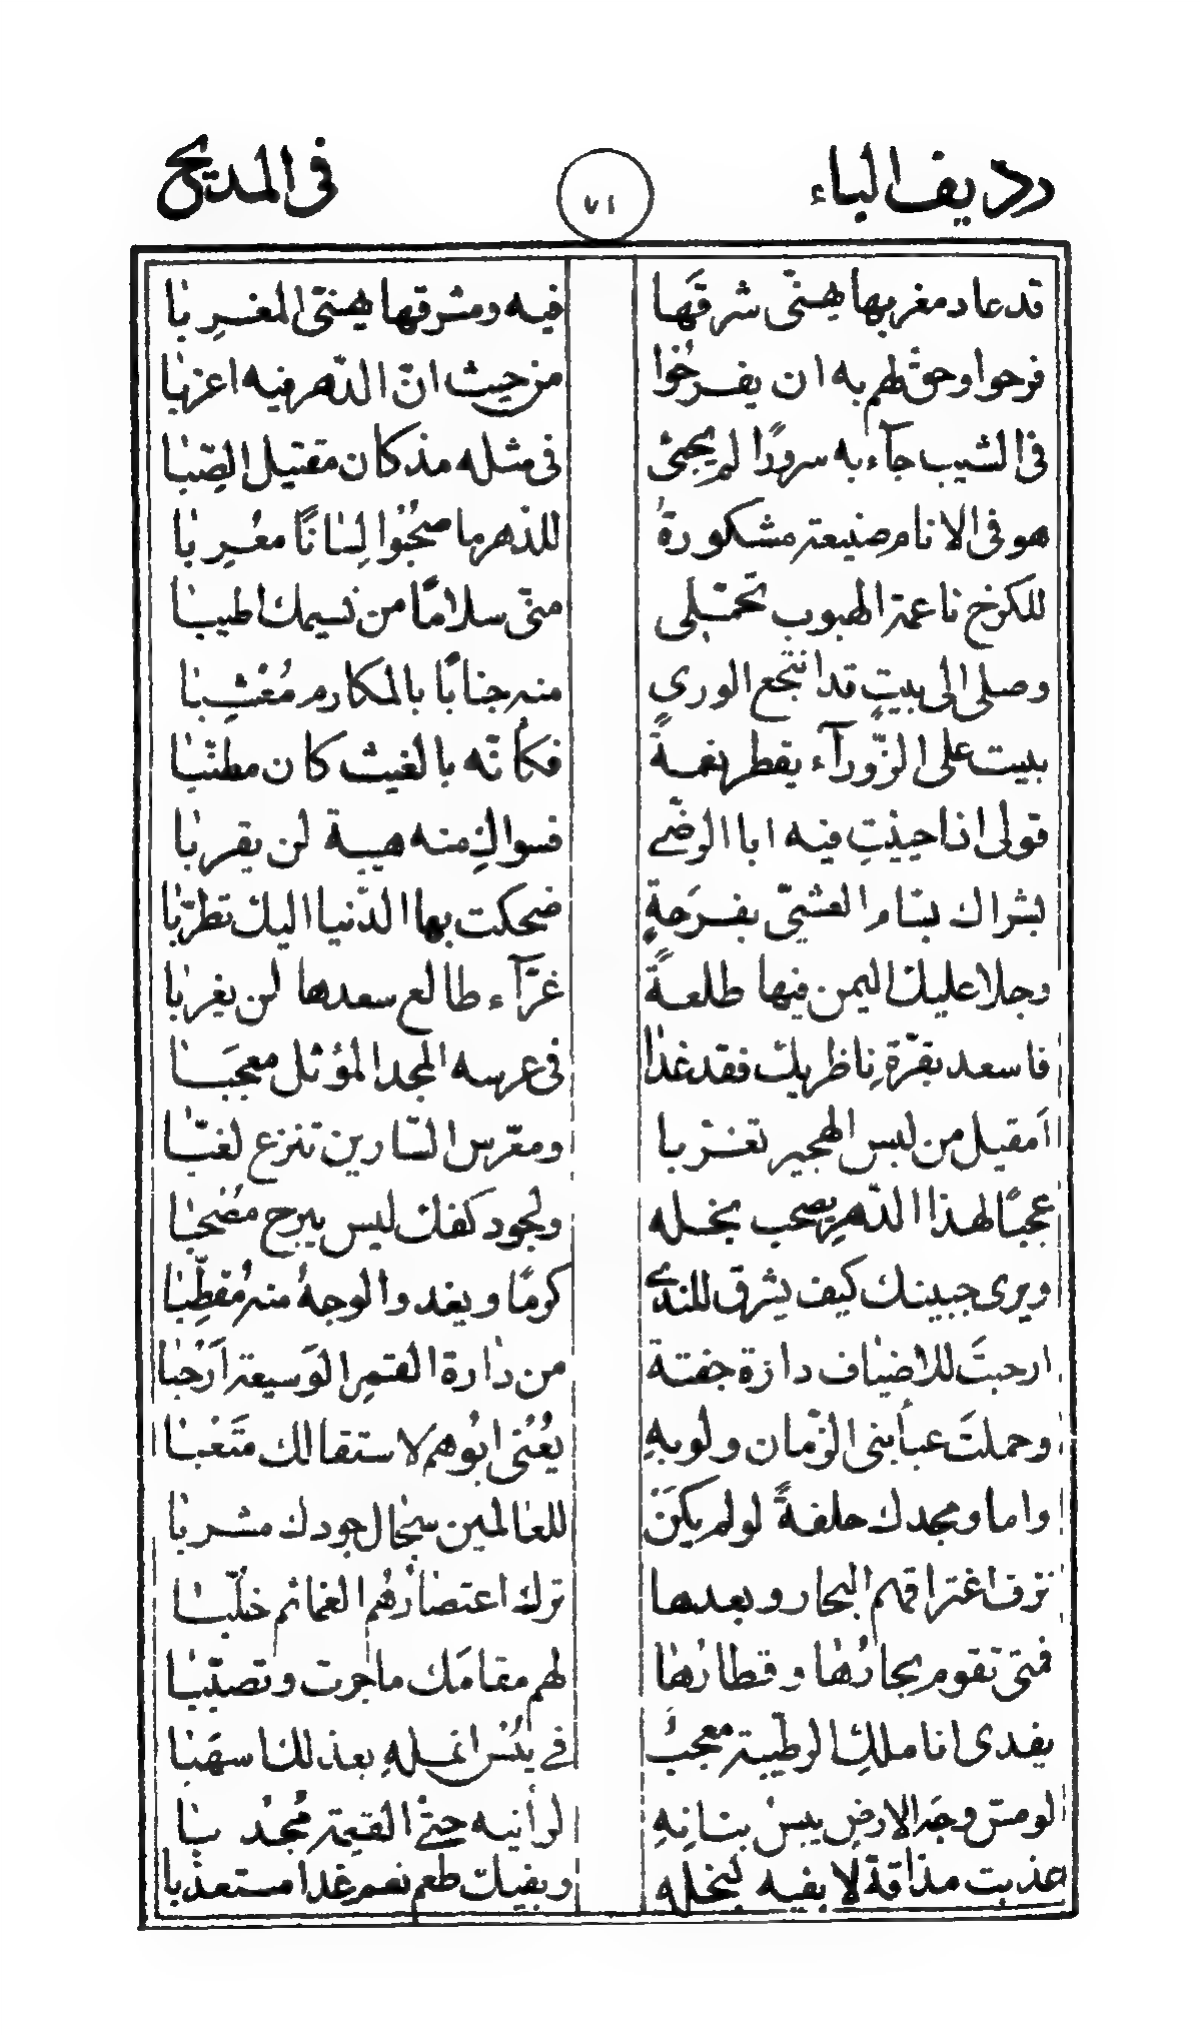 رديف الباء ٧١ في المديح
قد عاد مغربها يهنّى شرقها فيه ومشرقها يهنّى المغربا
فرحوا وحقّ لهم به ان يفرحُوا من حيث انّ الدّهر فيه اعربا
فى الشيب جآء به سرورًا لم يجئ فى مثله مذ كان مقتبل الصِّبا
هو فى الانام صنيعة مشكورةٌ للدّهر ما صحبُوا لِسانًا معُربا
للكرخ ناعمة الهبوب تحمّلى منّى سلامًا من نسيمك اطيبا
وصلى الى بيتٍ قد انتجع الورى منه جنابًا بالمكارم مُعْشِبا
بيت على الزّورآء يقطر نعمةً فكأنّه بالغيث كان مطنّبا
قولى اذا حيّيتِ فيه ابا الرضى فسواكِ منه هيبة لن يقربا
بشراك بسّام العشيّ بفرَحةٍ ضحكت بها الدّنيا اليك تطرّبا
وجلا عليك اليمن فيها طلعةً غرّآء طالع سعدها لن يغربا
فاسعد بقرّةِ ناظريك فقد غدا فى عرسه المجد المؤثل معجَبا
أمقيل من لبس الهجير تغرّبا ومعرّس السّارين تنزع لغبّا
عجبًا لهذا الدّهر يصحب بخله ولجود كفك ليس يبرح مصْحبا
ويرى جبينك كيف يشرق للندى كرمًا ويغدو الوجهُ منه مُقطِّبا
ارحبتَ للاضياف دارة جفنة من دارة القمر الوَسيعة اَرْحبا
وحملتَ عبأ بنى الزّمان ولو بهِ يُعْنى ابُوهم لاستقالك متَعْبا
واما ومجدك حلفةً لو لم يكن للعالمين سجال جودك مشربا
نزف اغترافهم البحار وبعدها ترك اعتصارُهُم الغمائم خلّبا
فمتى تقوم بحارُها وقطارُها لهم مقامَك ما جرت وتصبّبا
يفدى اناملك الرطيبة معجبٌ فى يُبْس انمله بعذلك اسهَبا
لو مسّ وجه الارض يبسُ بنانِهِ لرأيته حتّى القيمة مُجْدبا
عذبت مذاقة لا بفيه لبخله وبفيك طعم نعم غدا مستعذبا